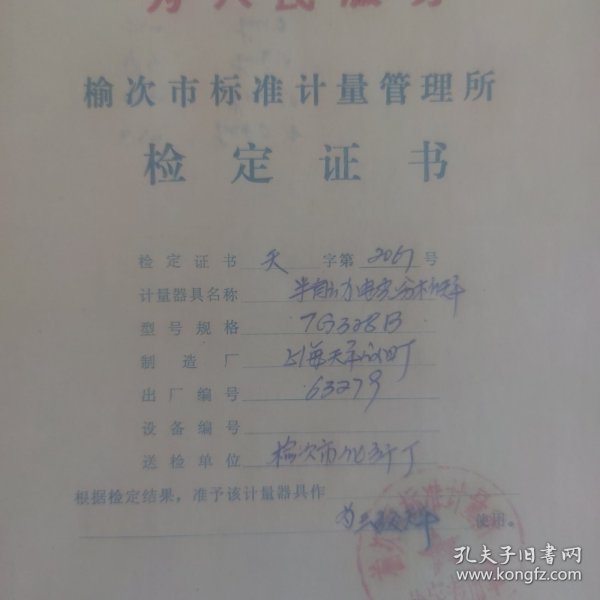 为人民服务
榆次市标准计量管理所
检定证书
检定证书 天 字第 2067 号
计量器具名称 半自动电光分析天平
型号规格 TG328B
制造厂 上海天平仪器厂
出厂编号 63279
设备编号
送检单位 榆次市化纤厂
根据检定结果，准予该计量器具作
为三级天平 使用。
孔夫子旧书网
www.kongfz.com